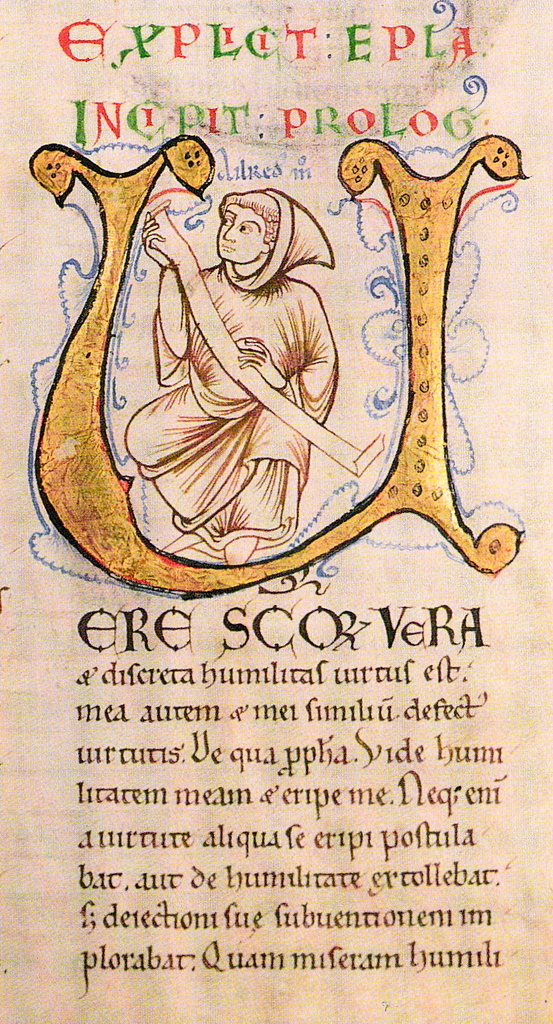 EXPLICIT: EPLA
INCIPIT: PROLOG
Ailred m̄
U
ERE SCOR VERA
& discreta humilitas uirtus est.
mea autem & mei similiū defect'
uirtutis. De qua ꝓpħa. Vide humi
litatem meam & eripe me. Neq; eni
a uirtute aliqua se eripi postula
bat. aut de humilitate extollebat.
s; deiectioni suę subuentionem im
plorabat. Quam miseram humili